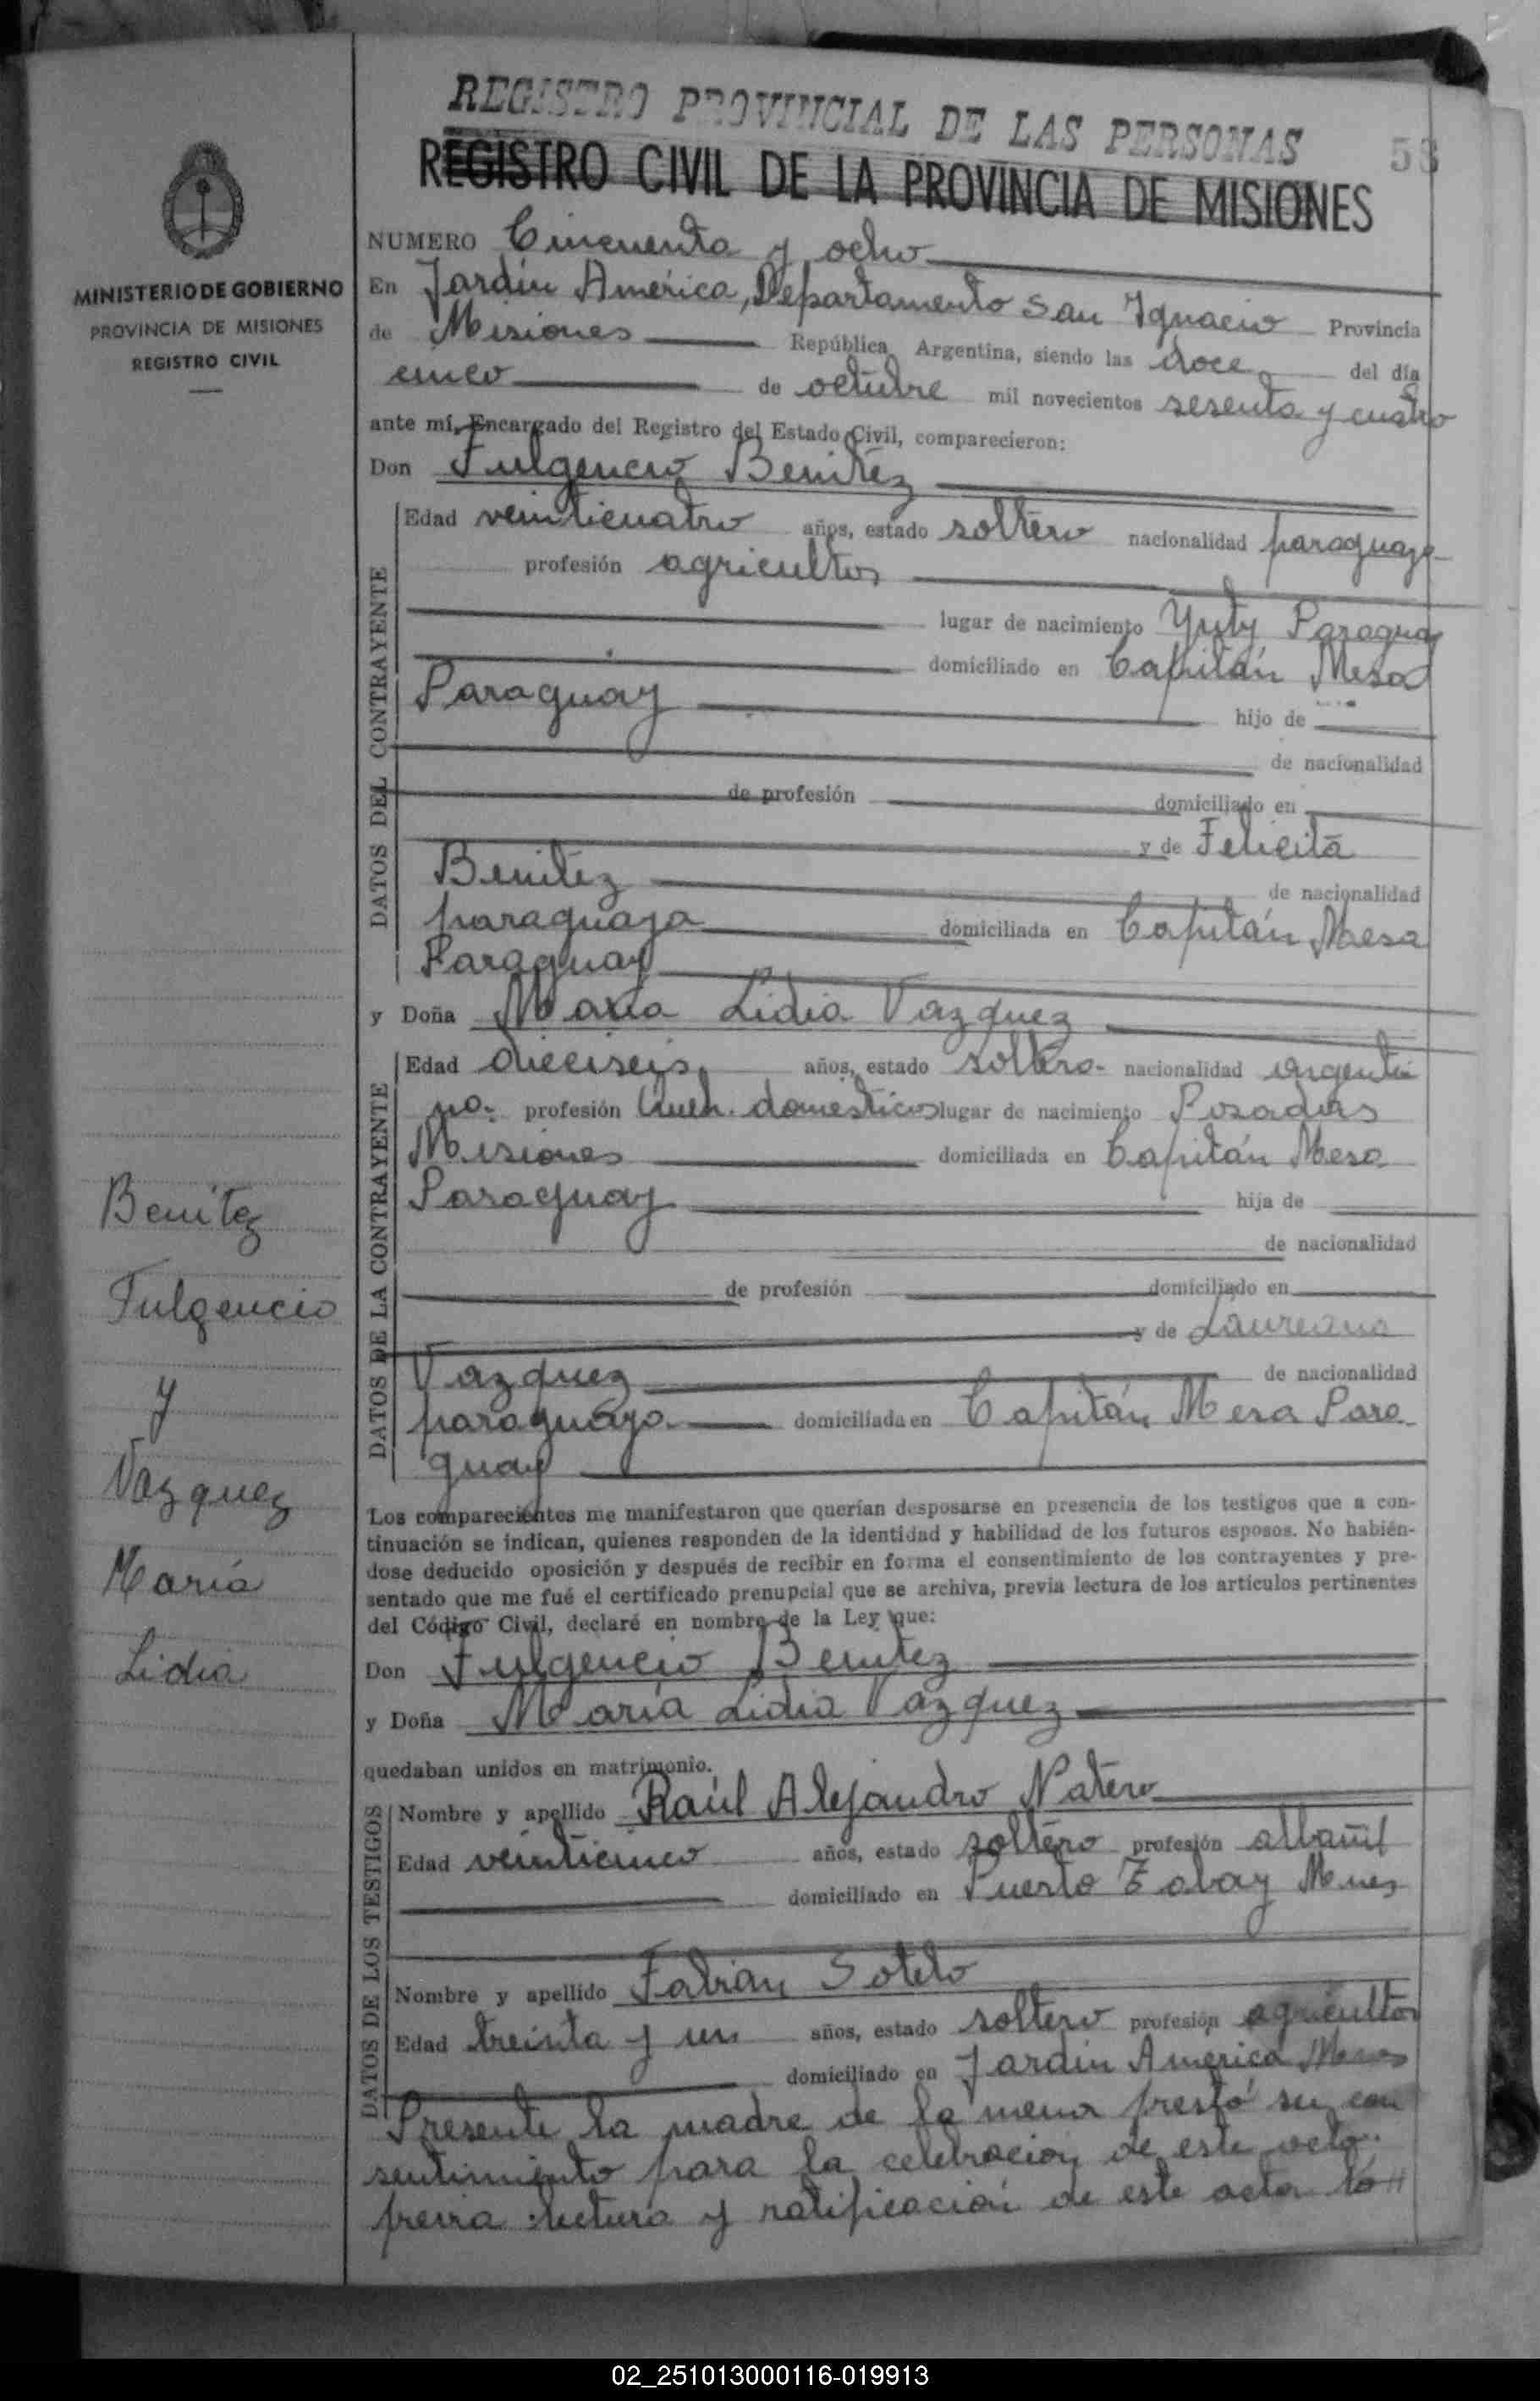 REGISTRO PROVINCIAL DE LAS PERSONAS
58
REGISTRO CIVIL DE LA PROVINCIA DE MISIONES
MINISTERIO DE GOBIERNO
PROVINCIA DE MISIONES
REGISTRO CIVIL
NUMERO Cincuenta y ocho
En Jardín América, Departamento San Ignacio Provincia
de Misiones República Argentina, siendo las doce del día
cinco de octubre mil novecientos sesenta y cuatro
ante mí, Encargado del Registro del Estado Civil, comparecieron:
Don Fulgencio Benítez
DATOS DEL CONTRAYENTE
Edad veinticuatro años, estado soltero nacionalidad paraguaya
profesión agricultor
lugar de nacimiento Yuty Paraguay
domiciliado en Capitán Mesa
Paraguay hijo de
de nacionalidad
de profesión domiciliado en
y de Felicita
Benitez de nacionalidad
paraguaya domiciliada en Capitán Mesa
Paraguay
y Doña María Lidia Vazquez
DATOS DE LA CONTRAYENTE
Edad dieciseis años, estado soltera- nacionalidad argenti
na- profesión Queh. domesticos lugar de nacimiento Posadas
Misiones domiciliada en Capitán Mesa
Paraguay hija de
de nacionalidad
de profesión domiciliado en
y de Laureana
Vazquez de nacionalidad
paraguaya domiciliada en Capitán Mesa Para-
guay
Benitez
Fulgencio
y
Vazquez
María
Lidia
Los comparecientes me manifestaron que querían desposarse en presencia de los testigos que a con-
tinuación se indican, quienes responden de la identidad y habilidad de los futuros esposos. No habién-
dose deducido oposición y después de recibir en forma el consentimiento de los contrayentes y pre-
sentado que me fué el certificado prenupcial que se archiva, previa lectura de los artículos pertinentes
del Código Civil, declaré en nombre de la Ley que:
Don Fulgencio Benitez
y Doña María Lidia Vazquez
quedaban unidos en matrimonio.
DATOS DE LOS TESTIGOS
Nombre y apellido Raúl Alejandro Natero
Edad veinticinco años, estado soltero profesión albañil
domiciliado en Puerto Tabay Mnes
Nombre y apellido Fabian Sotelo
Edad treinta y un años, estado soltero profesión agricultor
domiciliado en Jardín América
Presente la madre de la menor prestó su con
sentimiento para la celebracion de este acto.
previa lectura y ratificación de este acta la
02_251013000116-019913